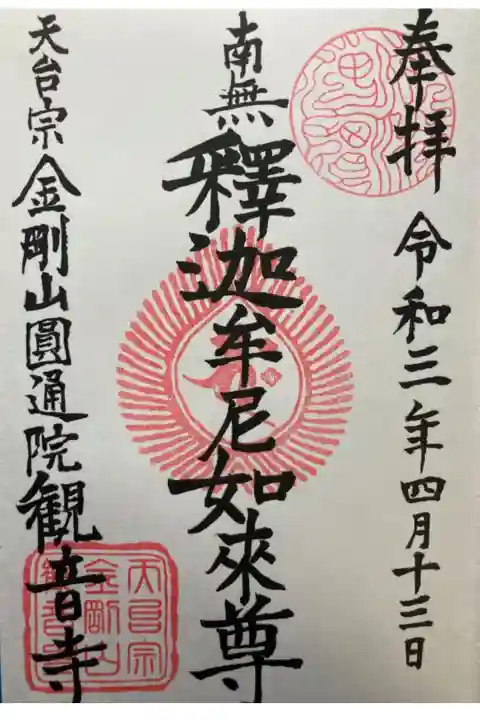 奉拝
令和三年四月十三日
南無
釋迦牟尼如來尊
天台宗金剛山圓通院観音寺
天台宗
金剛山
観音寺